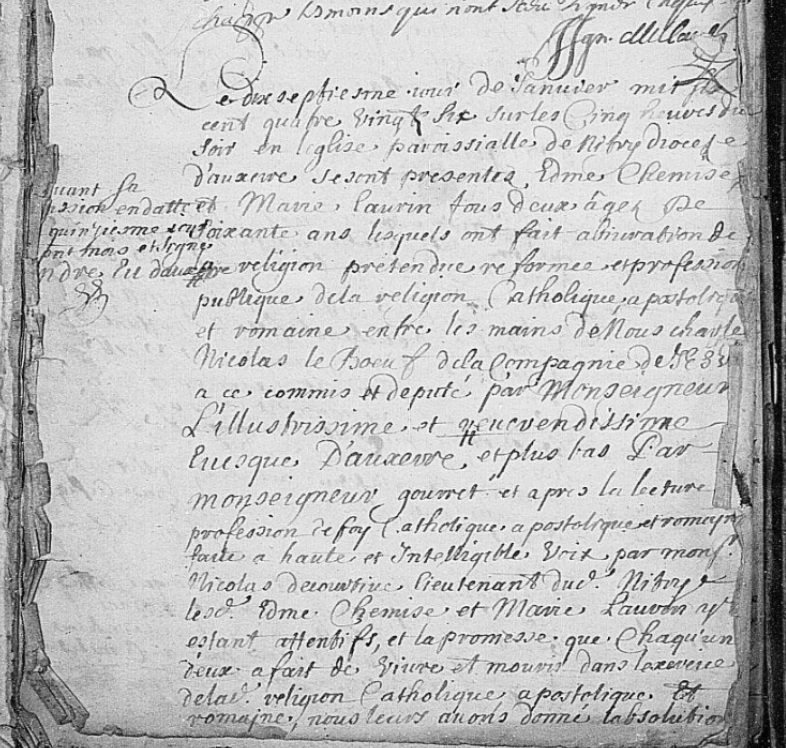 tesmoins qui nont sceu signer
Le dixseptiesme iour de Januier mil six
cent quatre vingt six sur les Cinq heures du
soir en leglise paroissialle de Nitry diocese
d'auxerre se sont presentes Edme Chemise
et Marie laurin tous deux âges De
soixante ans lesquels ont fait abiuration de
la religion pretendue reformee et profession
publique dela religion Catholique, apostolique
et romaine entre les mains de Nous charle
Nicolas le Boeuf dela Compagnie de Jesus
a ce commis et deputé par Monseigneur
L'illustrissime et reuerendissime
Euesque D'auxerre, et plus bas Par
monseigneur gourret et apres la lecture
profession de foy Catholique apostolique et romaine
faite a haute et Intelligible Voix par monsr.
Nicolas decourtiue lieutenant dud. Nitry
lesd. Edme Chemise et Marie Lauron y
estant attentifs, et la promesse que Chaqu'un
d'eux a fait de Viure et mourir dans lexercice
delad. religion Catholique apostolique Et
romaine, nous leurs auons donné labsolution
suyuant sa
mission en datte
quinziesme
mois et signé
Andre Eu d'auxerre